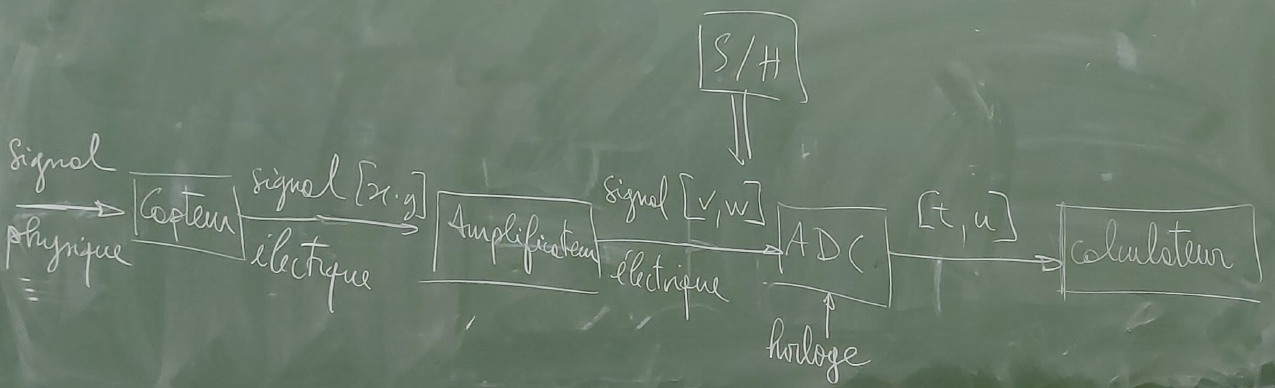 S/H
signal
physique
Capteur
signal [x.y]
électrique
Amplificateur
signal [v,w]
électrique
ADC
horloge
[t,u]
calculateur